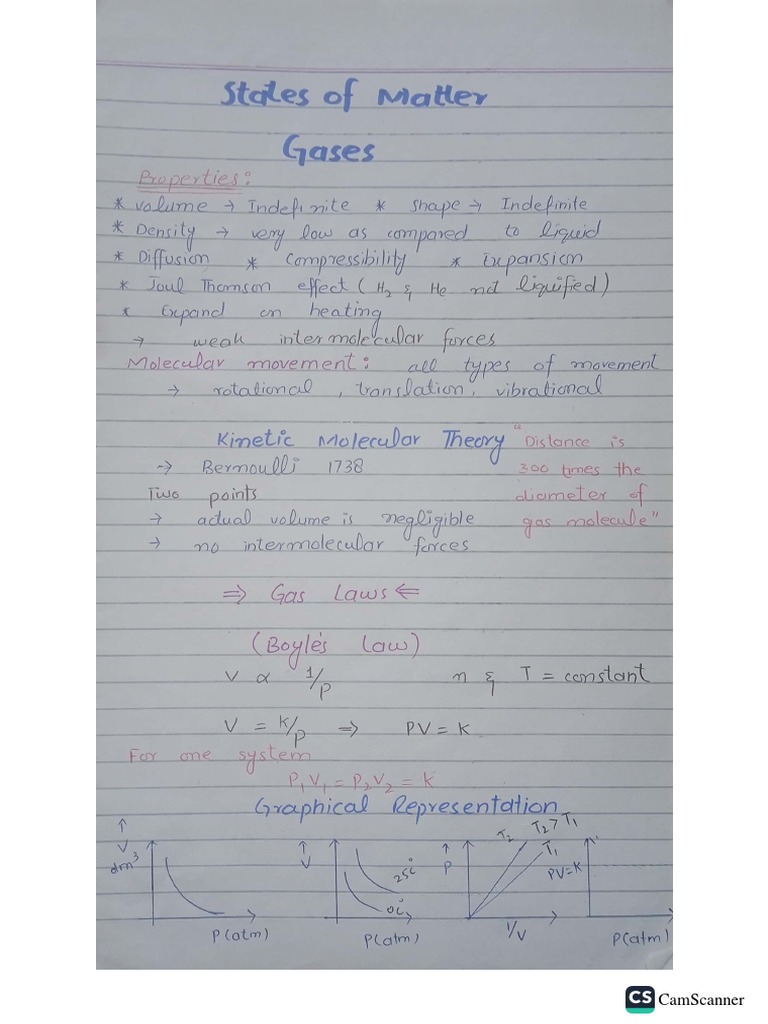 States of Matter
Gases
Properties:
* Volume → Indefinite * Shape → Indefinite
* Density → very low as compared to liquid
* Diffusion * Compressibility * Expansion
* Joul Thomson effect ( H₂ & He not liquified)
* Expand on heating
→ weak intermolecular forces
Molecular movement: all types of movement
→ rotational, translation, vibrational
Kinetic Molecular Theory
→ Bernoulli 1738
Two points
→ actual volume is negligible
→ no intermolecular forces
"Distance is
300 times the
diameter of
gas molecule"
⇒ Gas Laws ⇐
(Boyle's Law)
V ∝ 1/P n & T = constant
V = K/P ⇒ PV = K
For one system
P₁V₁ = P₂V₂ = K
Graphical Representation
↑ V dm³
P(atm)
↑ V
25°
0°
P(atm)
↑ P
T₂ T₂ > T₁
T₁
1/V
PV=K
P(atm)
CS CamScanner